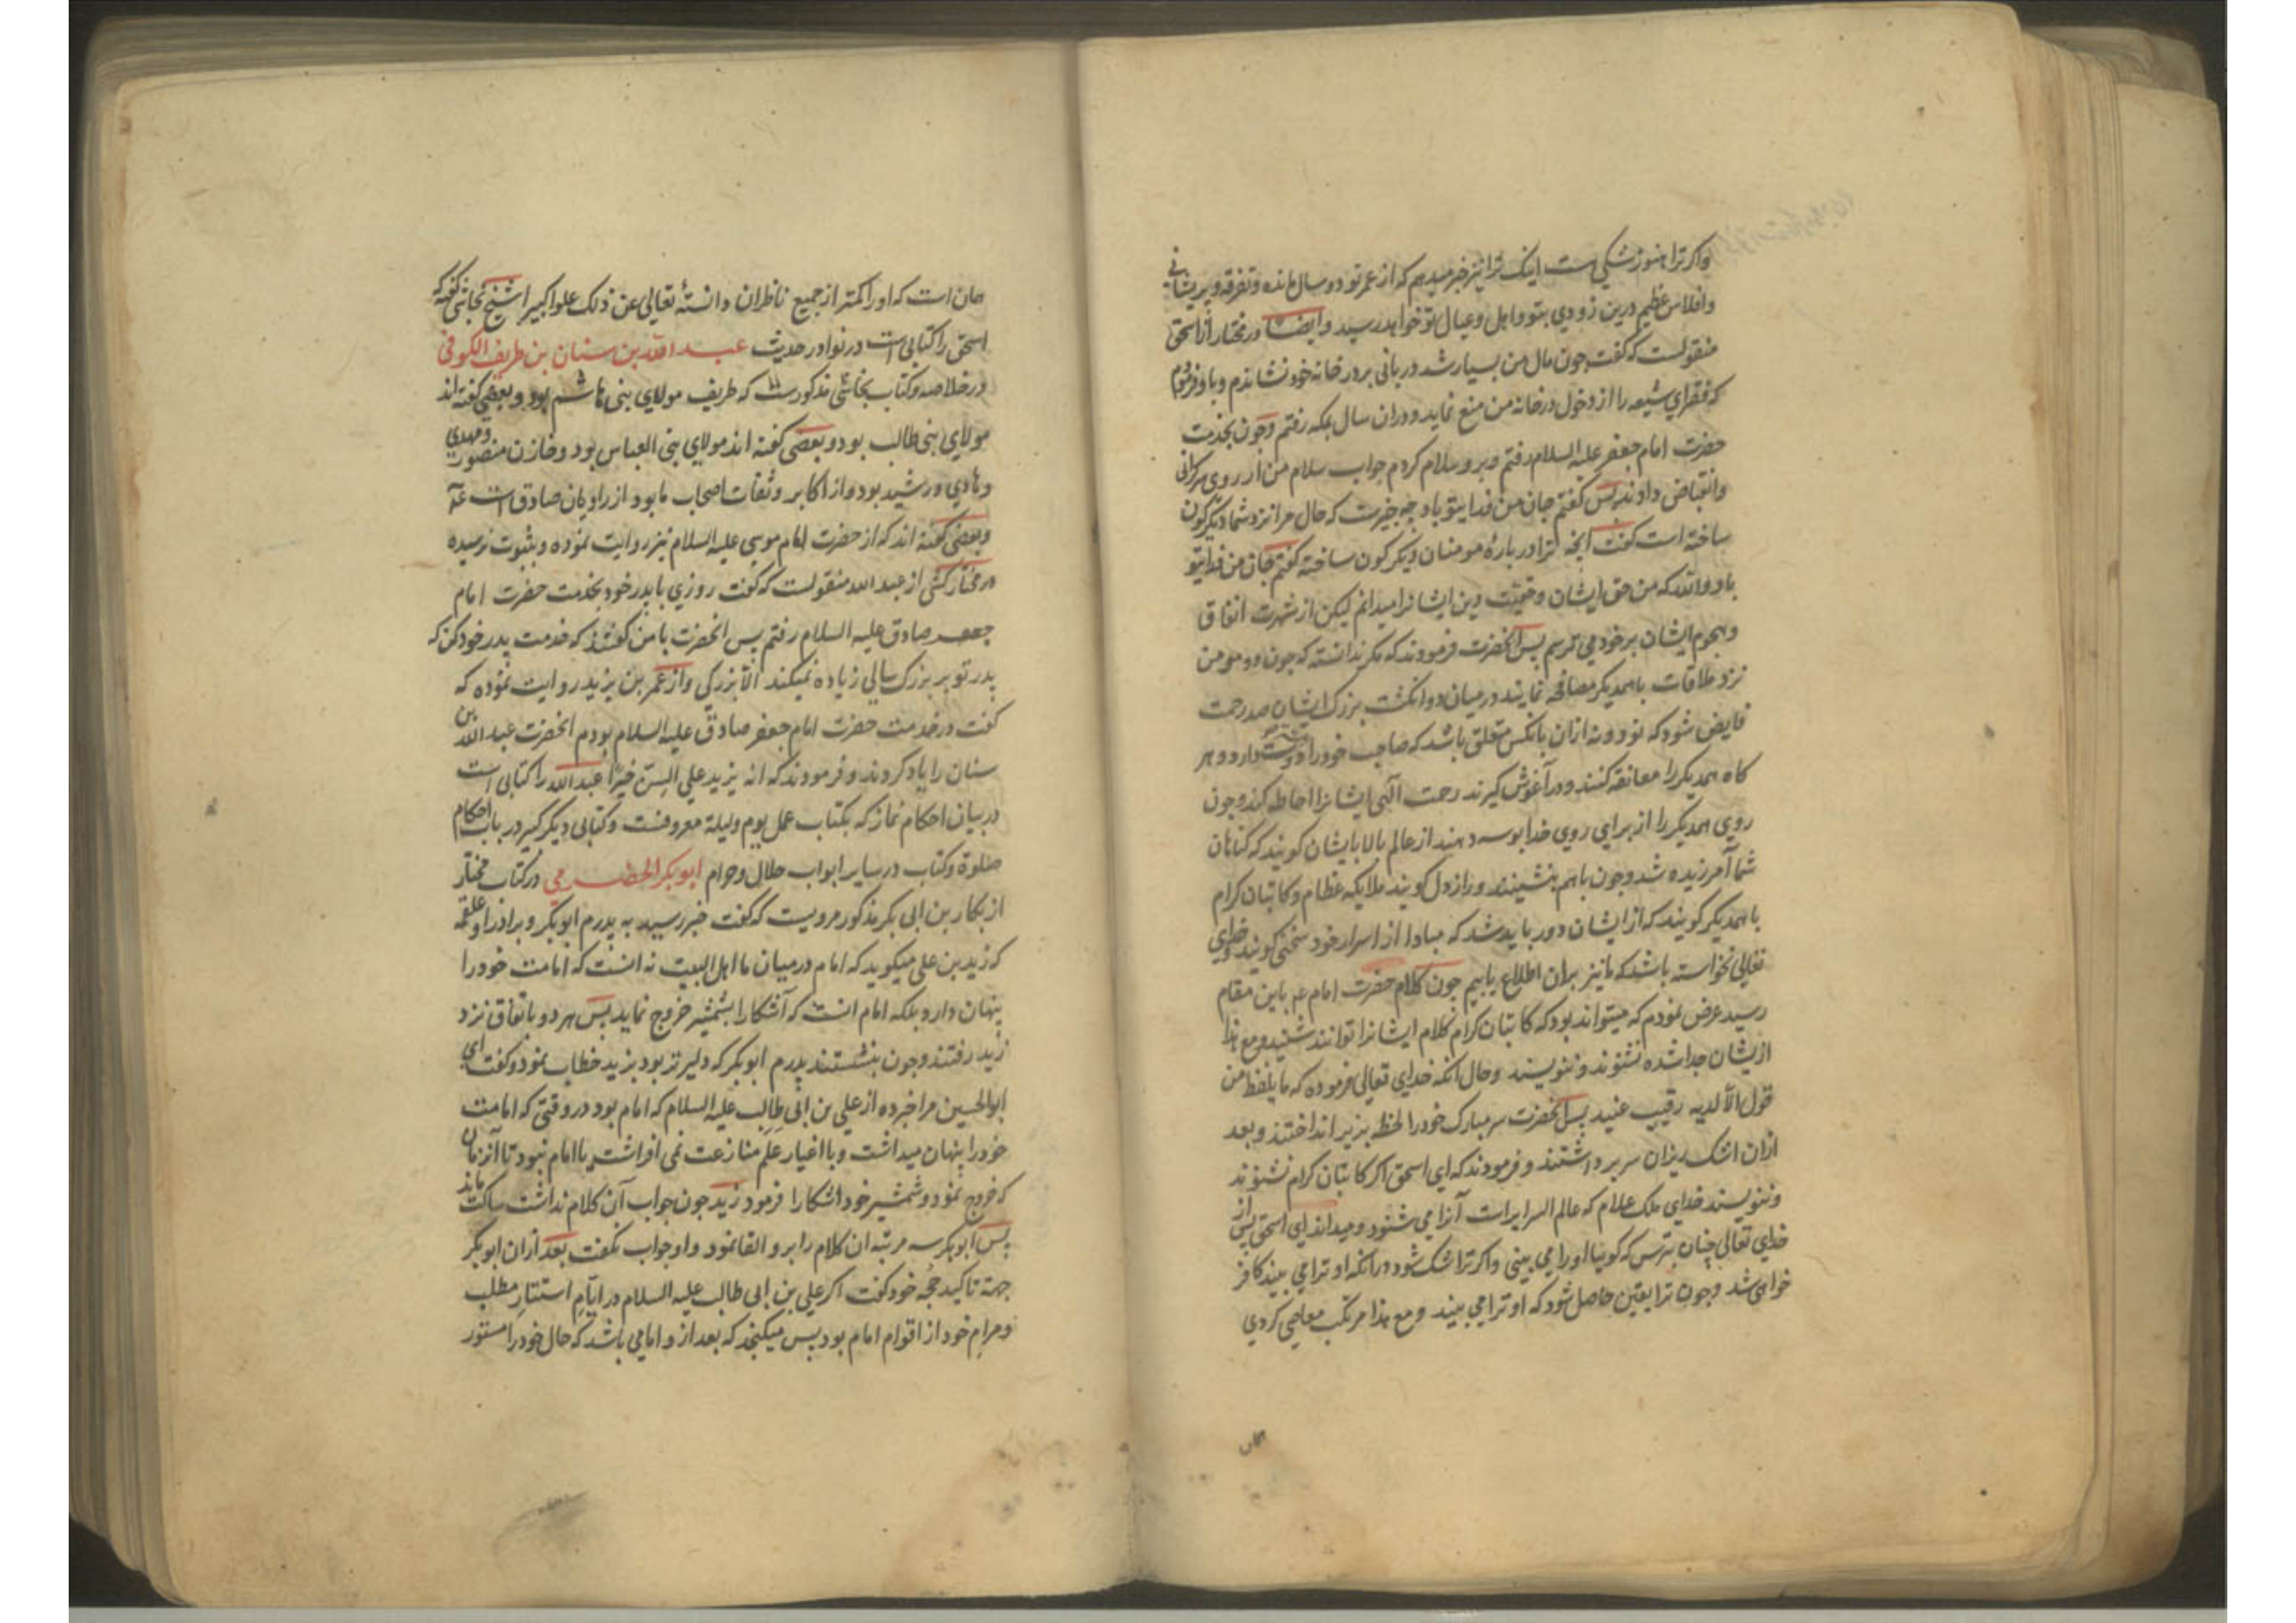 واکر ترا هنوز شکی هست اینک ترا نیز خبر میدهم که از عمر تو دو سال مانده و تفرقه و پریشانی
وافلاس عظیم درین زودی بتو و اهل و عیال تو خواهد رسید وایضا در مختار از اسحق
منقولست که کفت چون مال من بسیار شد دربانی بر در خانه خود نشاندم و باو فرمودم
که فقرای شیعه را از دخول در خانه من منع نماید و دران سال بمکه رفتم وچون بخدمت
حضرت امام جعفر علیه السلام رفتم و برو سلام کردم جواب سلام من از روی سرکرانی
وانقباض دادند پس کفتم جان من فدای تو باد چه چیزست که حال مرا نزد شما دیکرکون
ساخته است کفت آنچه ترا در بارهٔ مومنان دیکرکون ساخته کفتم جان من فدای تو
باد والله که من حق ایشان و حقیت دین ایشانرا میدانم لیکن از شهرت اتفاق
وهجوم ایشان بر خود می ترسم پس آنحضرت فرمودند که مکر ندانستهٔ که چون دو مومن
نزد ملاقات با همدیکر مصافحه نمایند در میان دو انکشت بزرک ایشان صد رحمت
فایض شود که نود و نه ازان بانکس متعلق باشد که صاحب خود را دوست دارد و هر
کاه همدیکر را معانقه کنند و در آغوش کیرند رحمت آلهی ایشانرا احاطه کند وچون
روی همدیکر را از برای روی خدا بوسه دهند از عالم بالا بایشان کویند که کناهان
شما آمرزیده شد وچون باهم بنشینند و راز دل کویند ملایکه عظام و کاتبان کرام
با همدیکر کویند که از ایشان دور باید شد که مبادا از اسرار خود سخنی کویند و خدای
تعالی نخواسته باشد که ما نیز بران اطلاع یابیم چون کلام حضرت امام عم باین مقام
رسید عرض نمودم که میتواند بود که کاتبان کرام کلام ایشانرا توانند شنید و مع هذا
ازیشان جدا شده نشنوند و ننویسند وحال آنکه خدای تعالی فرموده که ما یلفظ من
قول الا لدیه رقیب عتید پس آنحضرت سر مبارک خود را لحظه بزیر انداختند و بعد
ازان اشک ریزان سر برداشتند و فرمودند که ای اسحق اکر کاتبان کرام نشنوند
و ننویسند خدای ملک علام که عالم السرایرات آنرا می شنود و میداند ای اسحق پس از
خدای تعالی چنان بترس که کویا او را می بینی واکر ترا شک شود در آنکه او ترا می بیند کافر
خواهی شد وچون ترا یقین حاصل شود که او ترا می بیند ومع هذا مرتکب معاصی کردی
همان
همان است که اورا کمتر از جمیع ناظران دانستهٔ تعالی عن ذلک علوا کبیرا شیخ نجاشی کفته که
اسحق را کتابی است در نوادر حدیث عبد الله بن سنان بن طریف الکوفی
در خلاصه و کتاب نجاشی مذکورست که طریف مولای بنی هاشم بود و بعضی کفته اند
مولای بنی طالب بود و بعضی کفته اند مولای بنی العباس بود و خازن منصور و مهدی
و هادی و رشید بود و از اکابر و ثقات اصحاب ما بود از راویان صادق است
وبعضی کفته اند که از حضرت امام موسی علیه السلام نیز روایت نموده و بثبوت نرسیده
در مختار کشی از عبد الله منقولست که کفت روزی با پدر خود بخدمت حضرت امام
جعفر صادق علیه السلام رفتم پس آنحضرت با من کفتند که خدمت پدر خود کن که
پدر تو بر بزرک سالی زیاده نمیکند الا بزرکی واز عمر بن یزید روایت نموده که
کفت در خدمت حضرت امام جعفر صادق علیه السلام بودم آنحضرت عبد الله بن
سنان را یاد کردند و فرمودند که انه یزید علی السن خیرا عبد الله را کتابی است
در بیان احکام نماز که بکتاب عمل یوم ولیلة معروفست و کتابی دیکر کبیر در باب احکام
صلوة وکتاب در سایر ابواب حلال و حرام ابو بکر الحضرمی در کتاب مختار
از بکار بن ابی بکر مذکور مرویست که کفت خبر رسید به پدرم ابو بکر و برادر او علقمه
که زید بن علی میکوید که امام در میان ما اهل البیت نه انست که امامت خود را
پنهان دارد بلکه امام انست که آشکارا بشمشیر خروج نماید پس هر دو باتفاق نزد
زید رفتند وچون بنشستند پدرم ابو بکر که دلیرتر بود بزید خطاب نمود و کفت ای
ابو الحسین مرا خبر ده از علی بن ابی طالب علیه السلام که امام بود در وقتی که امامت
خود را پنهان میداشت و با اغیار علم منازعت نمی افراشت یا امام نبود تا آن زمان
که خروج نمود و شمشیر خود اشکارا فرمود زید چون جواب آن کلام نداشت ساکت ماند
پس ابو بکر سه مرتبه ان کلام را برو القا نمود و او جواب نکفت بعد ازان ابو بکر
جهة تاکید حجه خود کفت اکر علی بن ابی طالب علیه السلام در ایام استتار مطلب
ومرام خود از اقوام امام بود پس میکنجد که بعد از و امامی باشد که حال خود را مستور